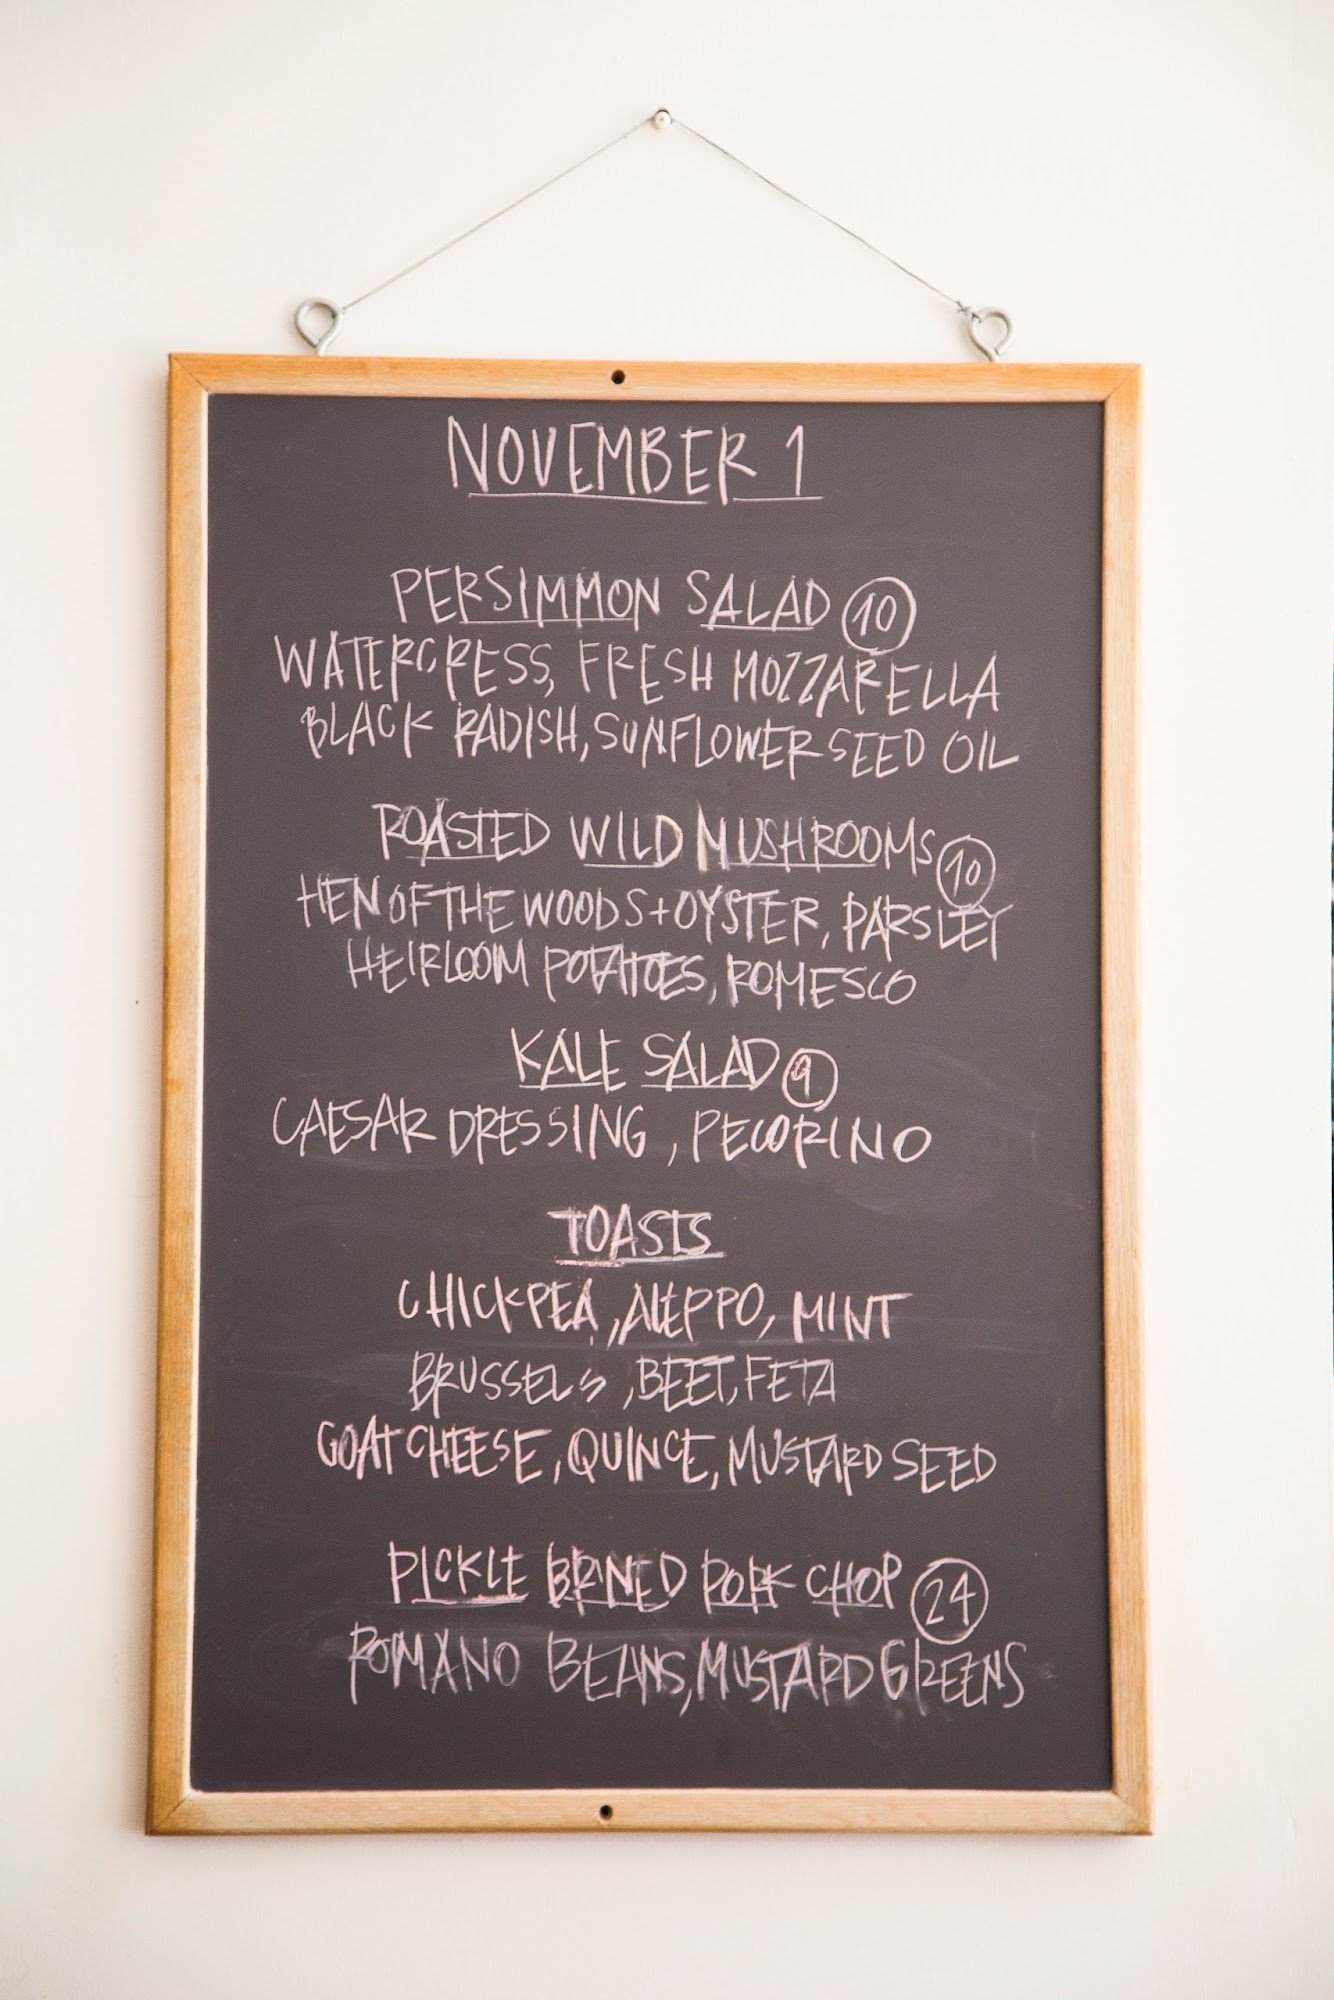 NOVEMBER 1
PERSIMMON SALAD 10
WATERCRESS, FRESH MOZZARELLA
BLACK RADISH, SUNFLOWER SEED OIL
ROASTED WILD MUSHROOMS 10
HEN OF THE WOODS + OYSTER, PARSLEY
HEIRLOOM POTATOES, ROMESCO
KALE SALAD 9
CAESAR DRESSING, PECORINO
TOASTS
CHICKPEA, ALEPPO, MINT
BRUSSELS, BEET, FETA
GOAT CHEESE, QUINCE, MUSTARD SEED
PICKLE BRINED PORK CHOP 24
ROMANO BEANS, MUSTARD GREENS